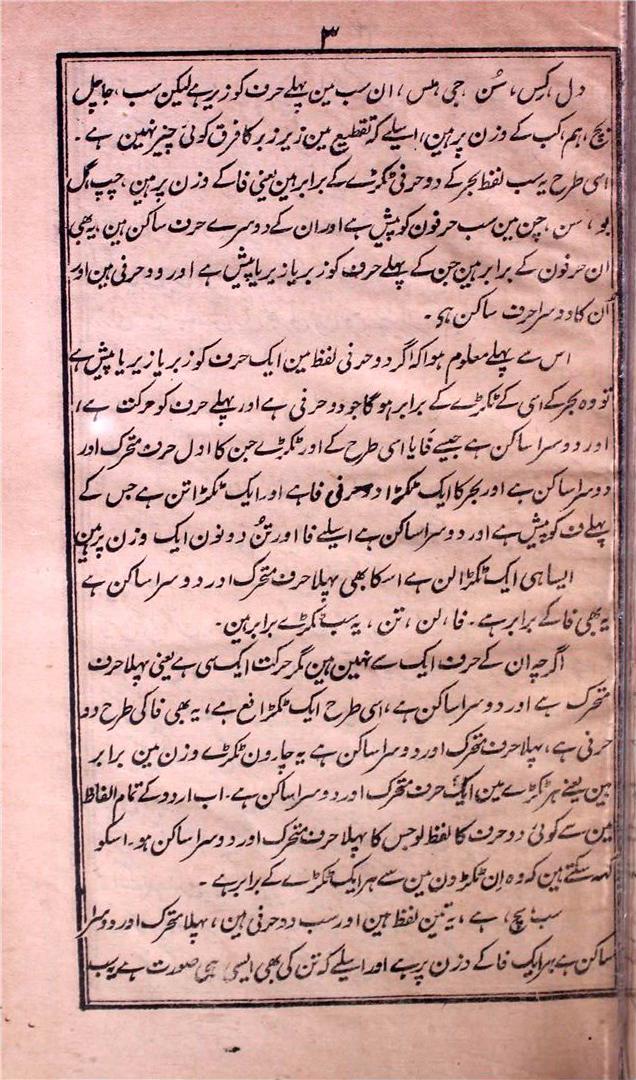 ۳
دل، کِس، سُن، جی، بس، ان سب مین پہلے حرف کو زیر ہے لیکن سب، جا، چل
بچ، ہم، کب کے وزن پر ہین، اسیلے کہ تقطیع مین زیر زبر کا فرق کوئی چیز نہین ہے۔
اسی طرح یہ سب لفظ بحر کے دو حرفی ٹکڑے کے برابر ہین یعنی فا کے وزن پر ہین، چپ، گل
بو، سن، جن مین سب حرفون کو پیش ہے اور ان کے دوسرے حرف ساکن ہین، یہ بھی
ان حرفون کے برابر ہین جن کے پہلے حرف کو زبر یا زیر یا پیش ہے اور دو حرفی ہین اور
اُن کا دوسرا حرف ساکن ہی۔
اس سے پہلے معلوم ہوا کہ اگر دو حرفی لفظ مین ایک حرف کو زبر یا زیر یا پیش ہے
تو وہ بحر کے اسی کے ٹکڑے کے برابر ہو گا جو دو حرفی ہے اور پہلے حرف کو حرکت ہے،
اور دوسرا ساکن ہے جیسے فا یا اسی طرح کے اور ٹکڑے جن کا اول حرف متحرک اور
دوسرا ساکن ہے اور بحر کا ایک ٹکڑا دو حرفی فا ہے اور ایک ٹکڑا تن ہے جس کے
پہلے ت کو پیش ہے اور دوسرا ساکن ہے اسیلے فا اور تُن دونون ایک وزن پر ہین
ایسا ہی ایک ٹکڑا لن ہے اسکا بھی پہلا حرف متحرک اور دوسرا ساکن ہے
یہ بھی فا کے برابر ہے۔ فا، لن، تن، یہ سب ٹکڑے برابر ہین۔
اگرچہ ان کے حرف ایک سے نہین ہین مگر حرکت ایک سی ہے یعنی پہلا حرف
متحرک ہے اور دوسرا ساکن ہے، اسی طرح ایک ٹکڑا فع ہے، یہ بھی فا کی طرح دو
حرفی ہے، پہلا حرف متحرک اور دوسرا ساکن ہے یہ چارون ٹکڑے وزن مین برابر
ہین یعنے ہر ٹکڑے مین ایک حرف متحرک اور دوسرا ساکن ہے۔ اب اردو کے تمام الفاظ
مین سے کوئی دو حرف کا لفظ لو جس کا پہلا حرف متحرک اور دوسرا ساکن ہو۔ اسکو
کہہ سکتے ہین کہ وہ اِن ٹکڑون مین سے ہر ایک ٹکڑے کے برابر ہے۔
سب، بچ، ہے، یہ تین لفظ ہین اور سب دو حرفی ہین، پہلا متحرک اور دوسرا
ساکن ہے ہر ایک فا کے وزن پر ہے اور اسیلے کہ تن کی بھی ایسی ہی صورت ہے یہ سب